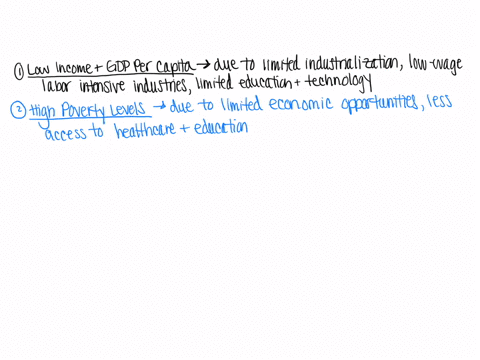 ① Low Income + GDP Per Capita → due to limited industrialization, low-wage
labor intensive industries, limited education + technology
② High Poverty Levels → due to limited economic opportunities, less
access to healthcare + education